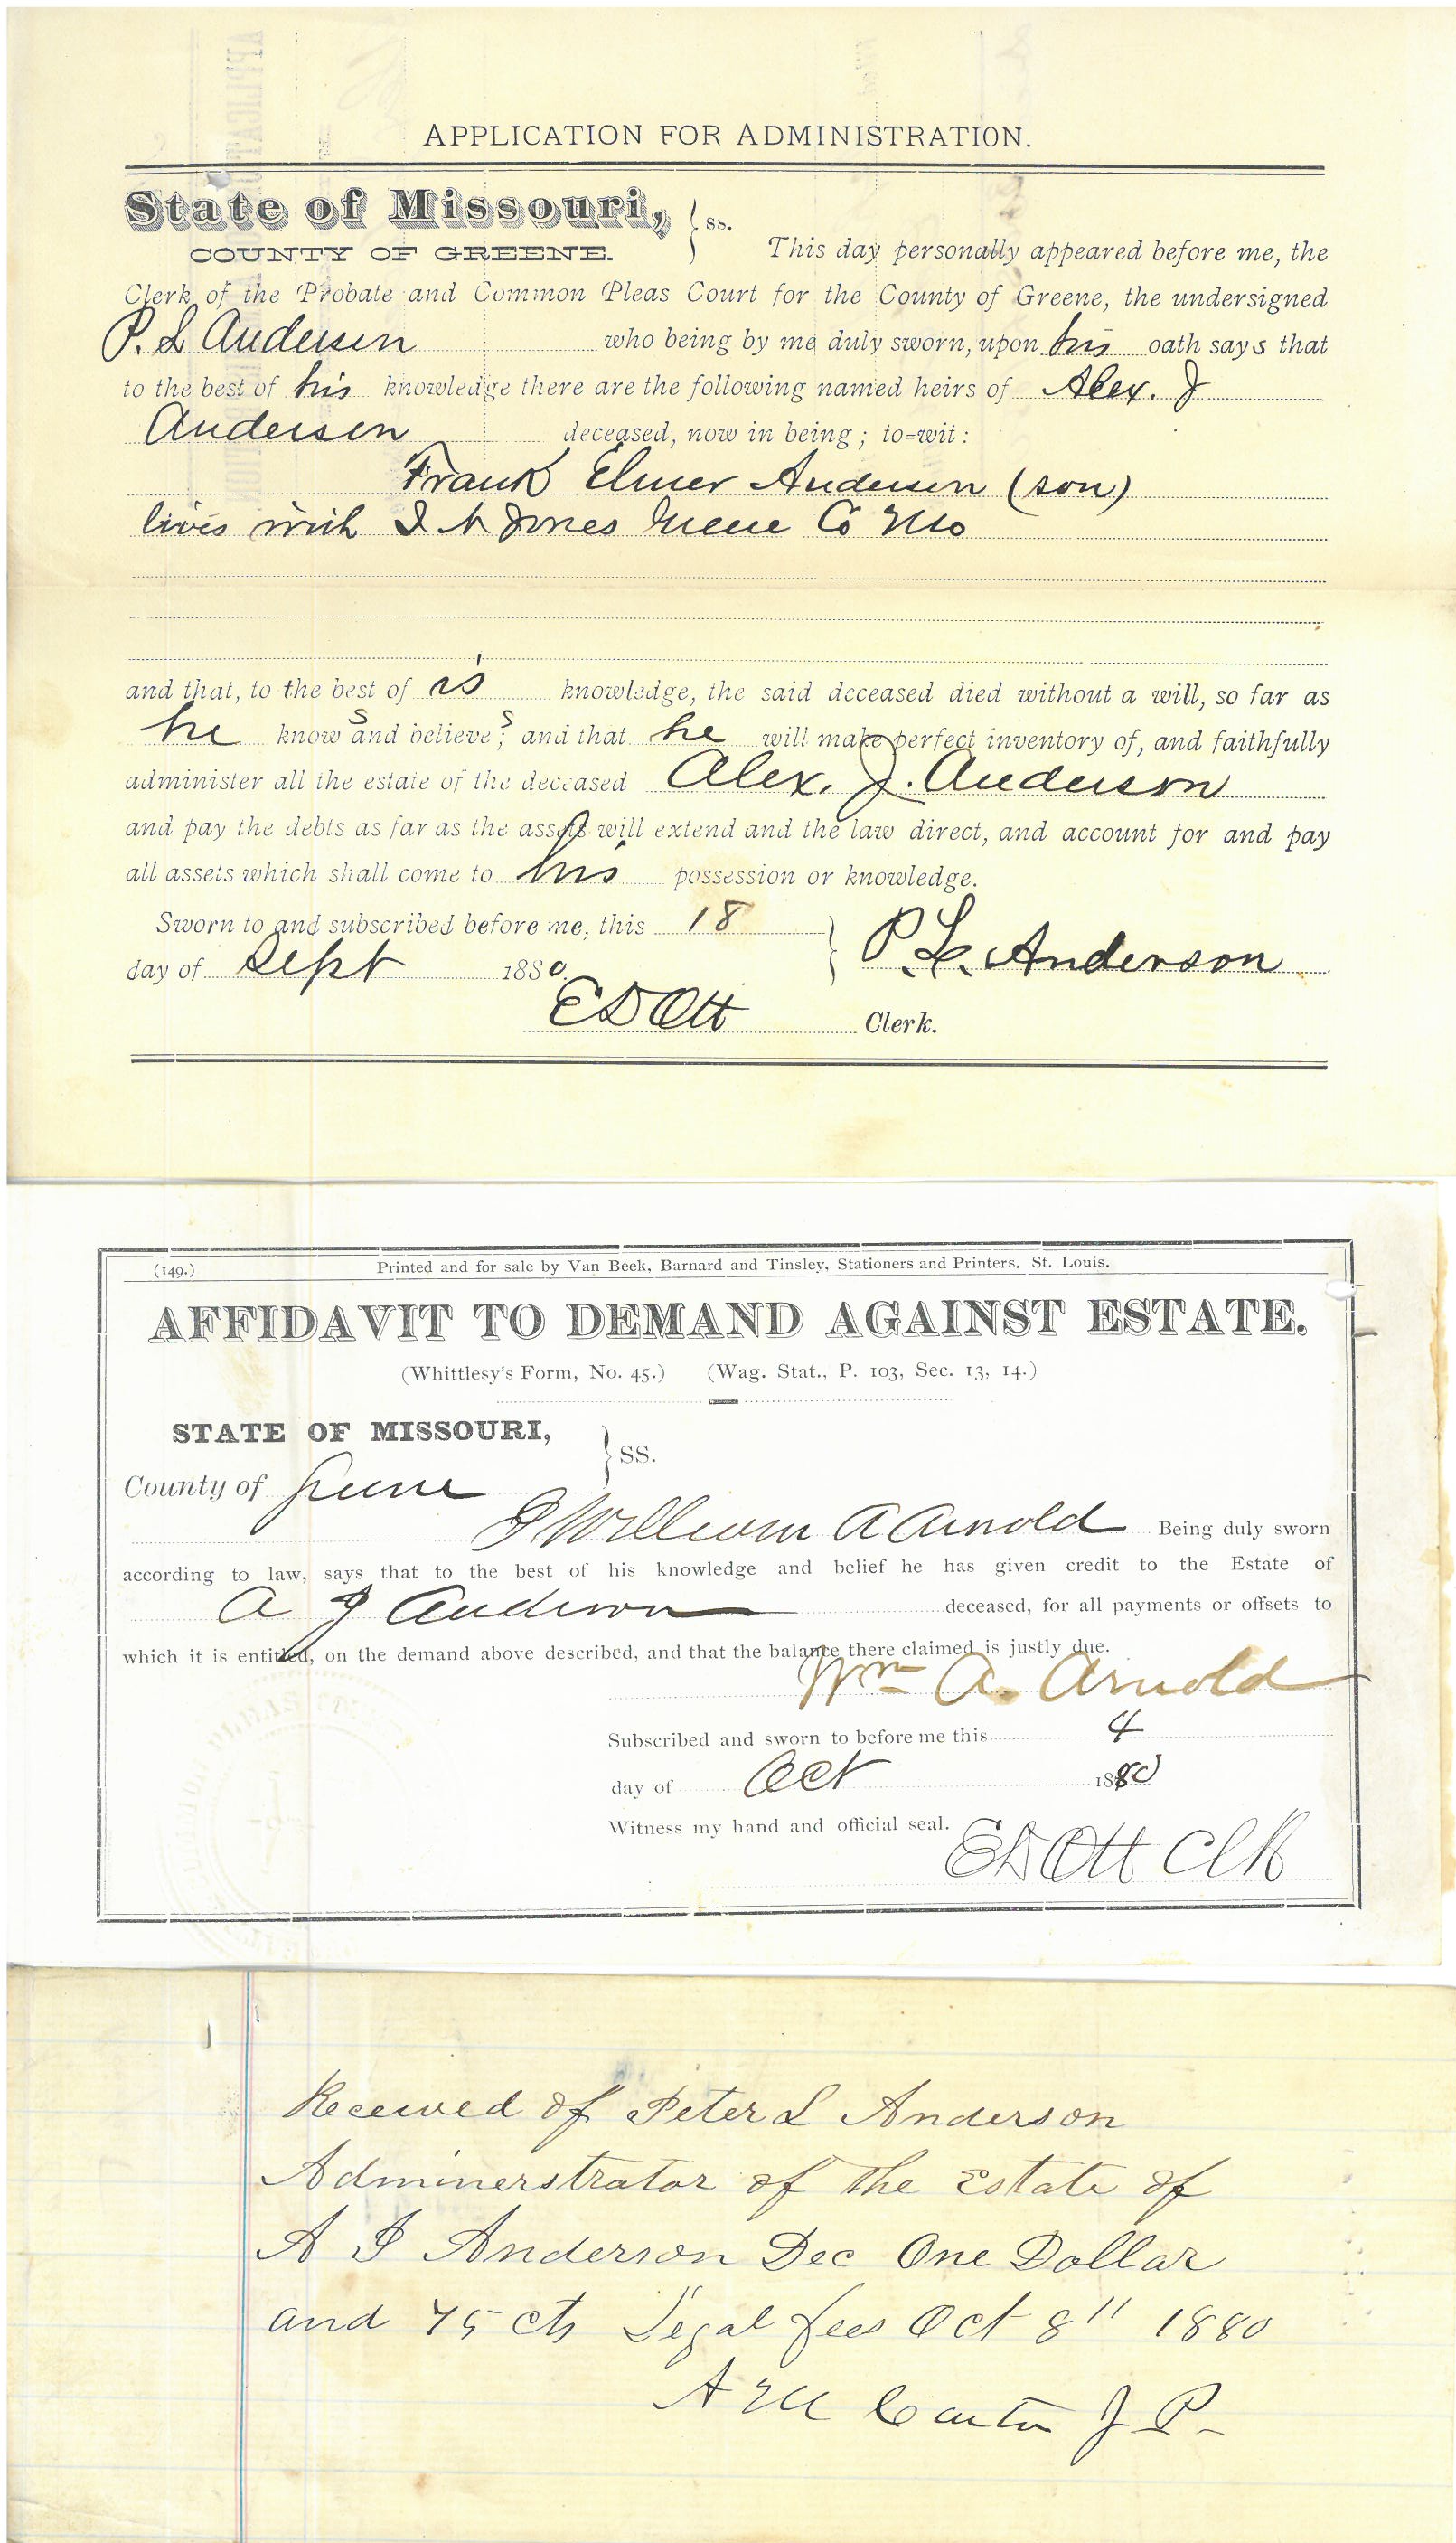 APPLICATION FOR ADMINISTRATION.
State of Missouri, } ss.
COUNTY OF GREENE.
This day personally appeared before me, the
Clerk of the Probate and Common Pleas Court for the County of Greene, the undersigned
P. L Anderson who being by me duly sworn, upon his oath says that
to the best of his knowledge there are the following named heirs of Alex. J
Anderson deceased, now in being; to=wit:
Frank Elmer Anderson (son)
lives with Jones Greene Co Mo
and that, to the best of is knowledge, the said deceased died without a will, so far as
he knows and believes; and that he will make perfect inventory of, and faithfully
administer all the estate of the deceased Alex. J. Anderson
and pay the debts as far as the assets will extend and the law direct, and account for and pay
all assets which shall come to his possession or knowledge.
Sworn to and subscribed before me, this 18 } P. L. Anderson
day of Sept 1880.
E D Ott Clerk.
(149.) Printed and for sale by Van Beek, Barnard and Tinsley, Stationers and Printers, St. Louis.
AFFIDAVIT TO DEMAND AGAINST ESTATE.
(Whittlesy's Form, No. 45.) (Wag. Stat., P. 103, Sec. 13, 14.)
STATE OF MISSOURI, } SS.
County of Greene
I William A Arnold Being duly sworn
according to law, says that to the best of his knowledge and belief he has given credit to the Estate of
A J Anderson deceased, for all payments or offsets to
which it is entitled, on the demand above described, and that the balance there claimed is justly due.
Wm A. Arnold
Subscribed and sworn to before me this 4
day of Oct 1880
Witness my hand and official seal.
E D Ott Clk
Received of Peter L Anderson
Adminerstrator of the Estate of
A J Anderson Dec One Dollar
and 75 cts Legal fees Oct 8" 1880
A M Carter J P